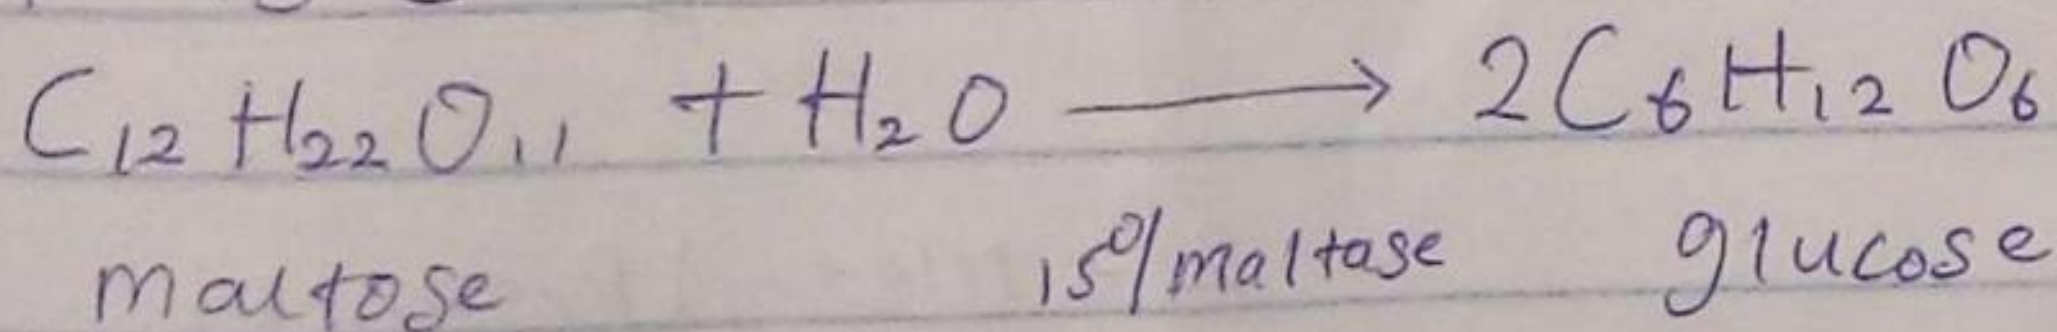 C₁₂H₂₂O₁₁ + H₂O ⟶ 2C₆H₁₂O₆
maltose 15°/maltase glucose